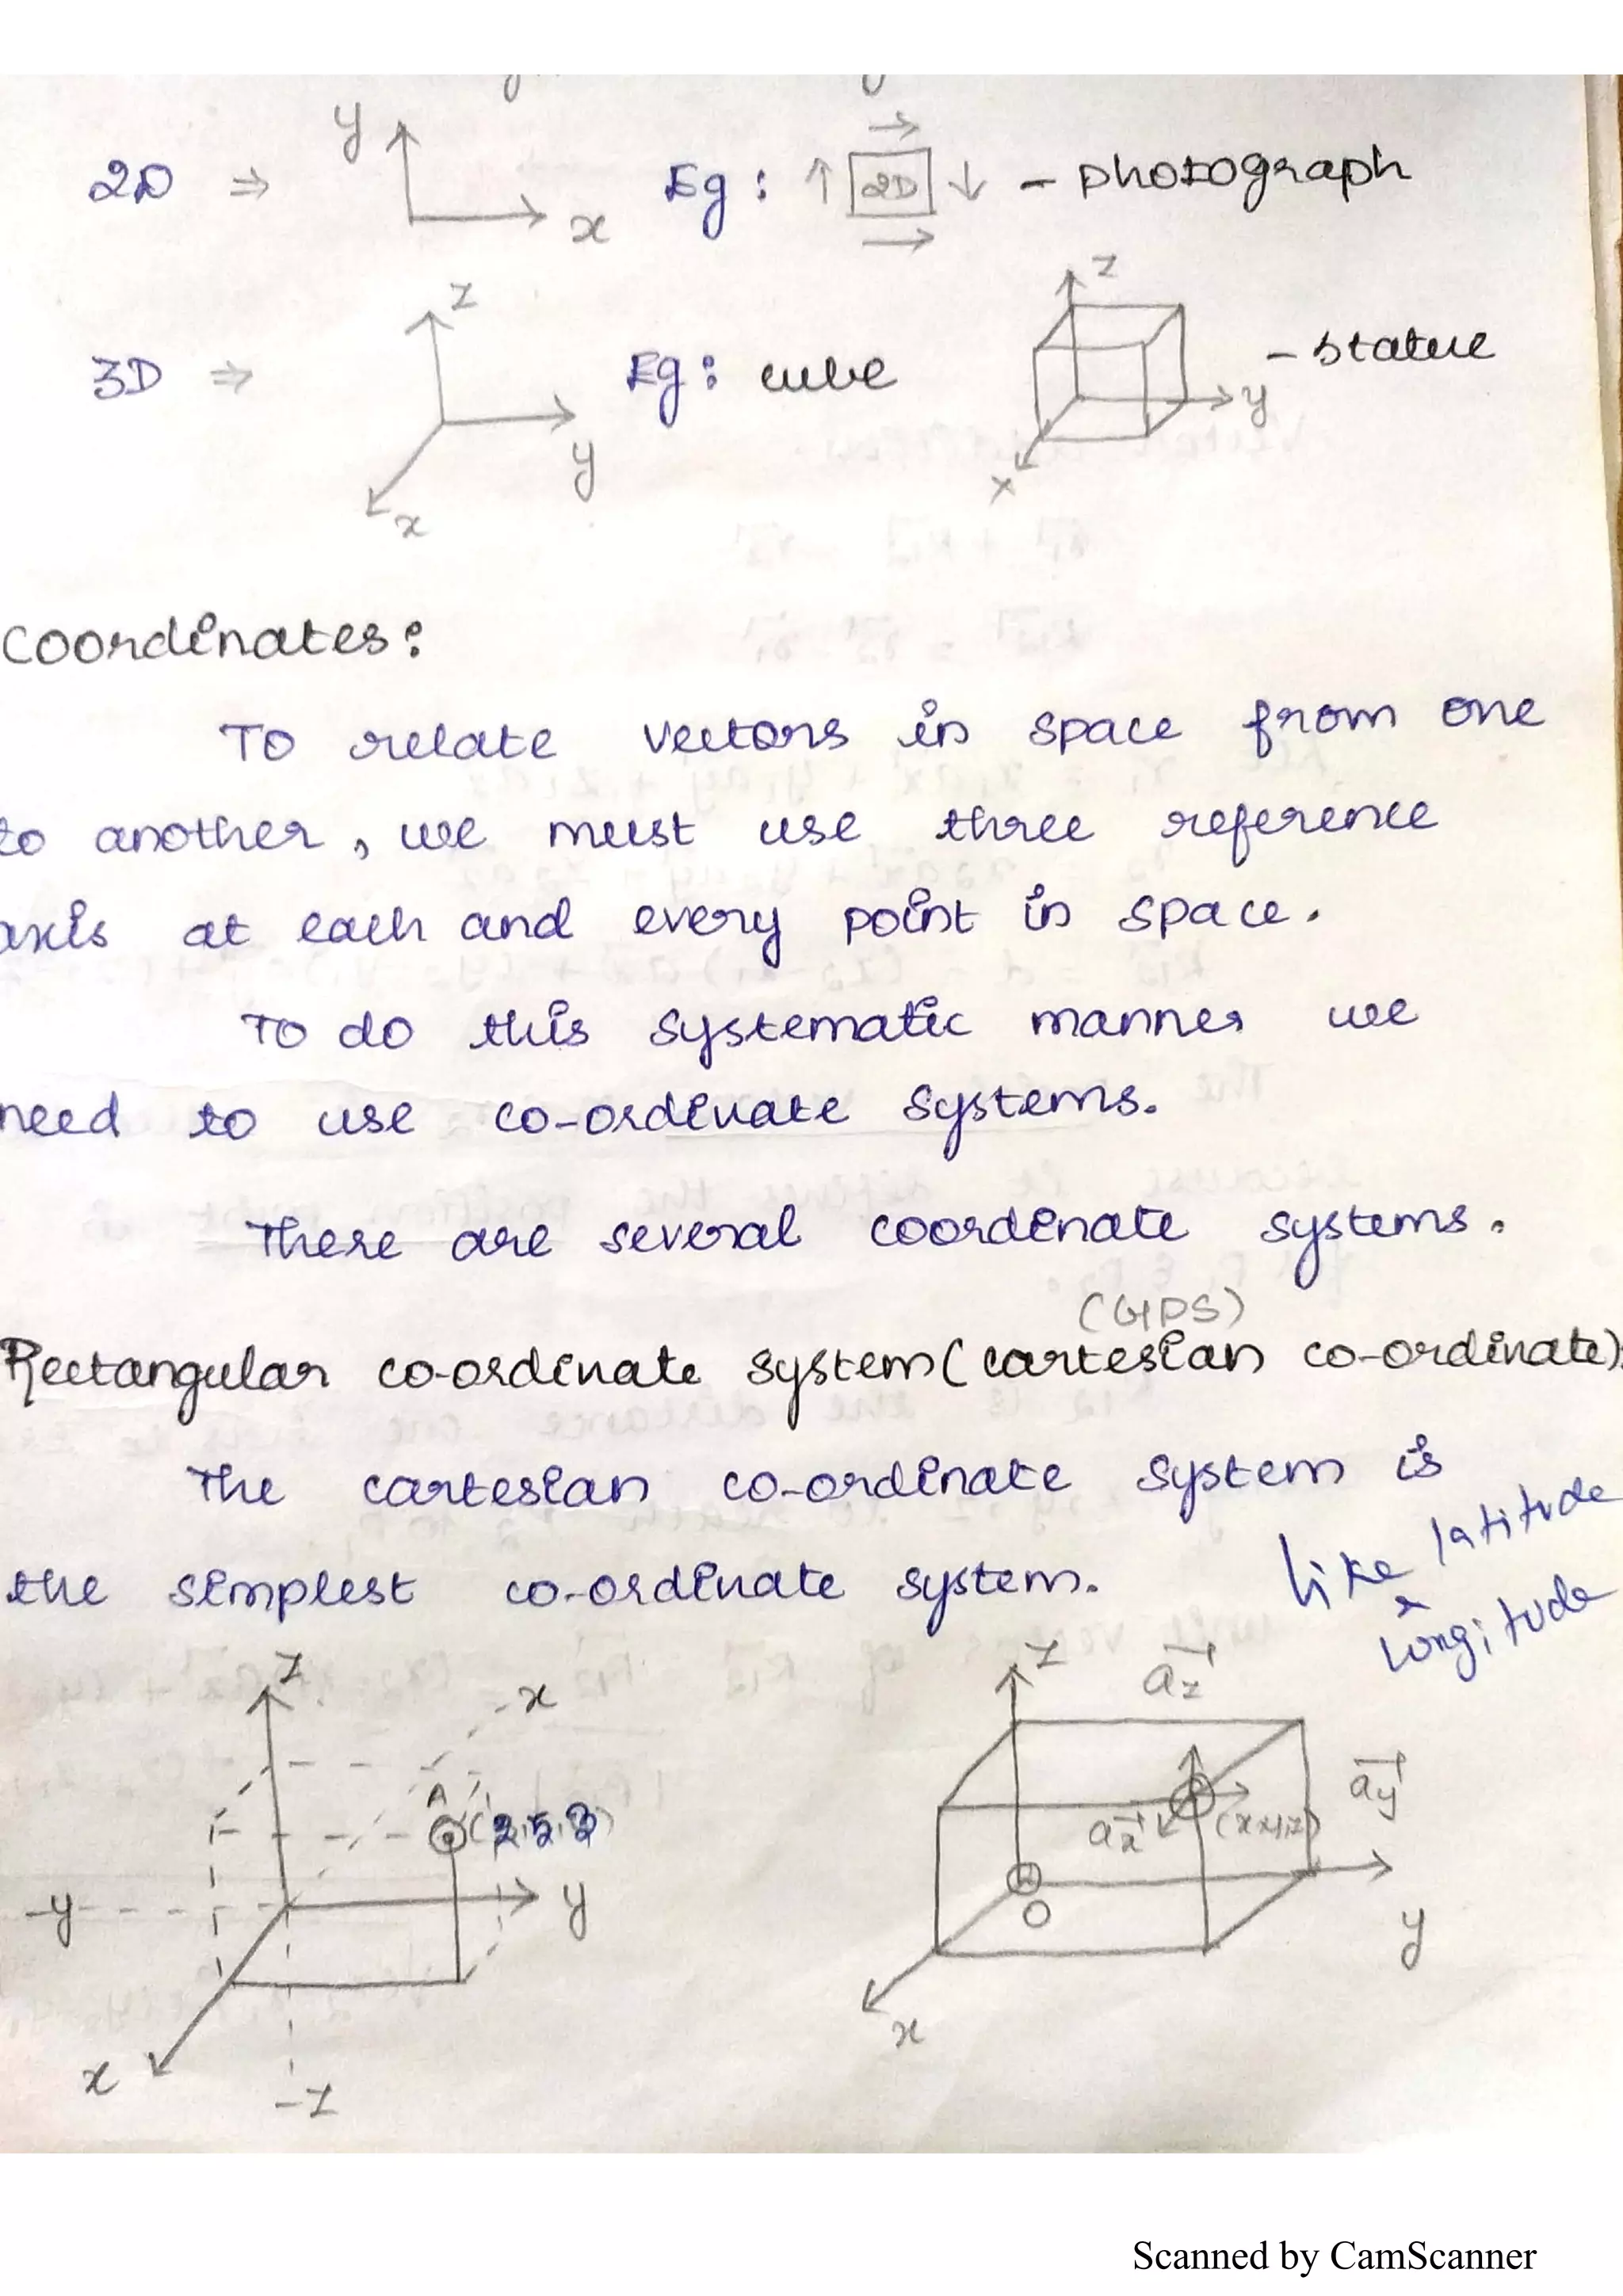 2D ⇒ y x Eg: ↑ 2D ↓ - photograph
3D ⇒ z y x Eg: cube z y x - statue
coordinates:
To relate vectors in space from one
to another, we must use three reference
axis at each and every point in space.
To do this systematic manner we
need to use co-ordinate systems.
There are several coordinate systems.
(GPS)
Rectangular co-ordinate system (cartesian co-ordinate):
The cartesian co-ordinate system is
the simplest co-ordinate system.
like latitude
&
longitude
z -x
A (2,5,3)
-y y
x
-z
z a⃗z
a⃗y
a⃗x (x,y,z)
O
y
x
Scanned by CamScanner